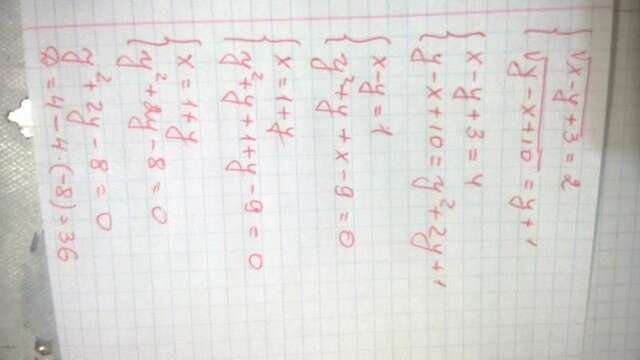 √x-y+3 = 2
√y-x+10 = y+1
x-y+3 = 4
y-x+10 = y²+2y+1
x-y = 1
y²+y+x-9 = 0
x = 1+y
y²+y+1+y-9 = 0
x = 1+y
y²+2y-8 = 0
y²+2y-8 = 0
D = 4-4·(-8) = 36